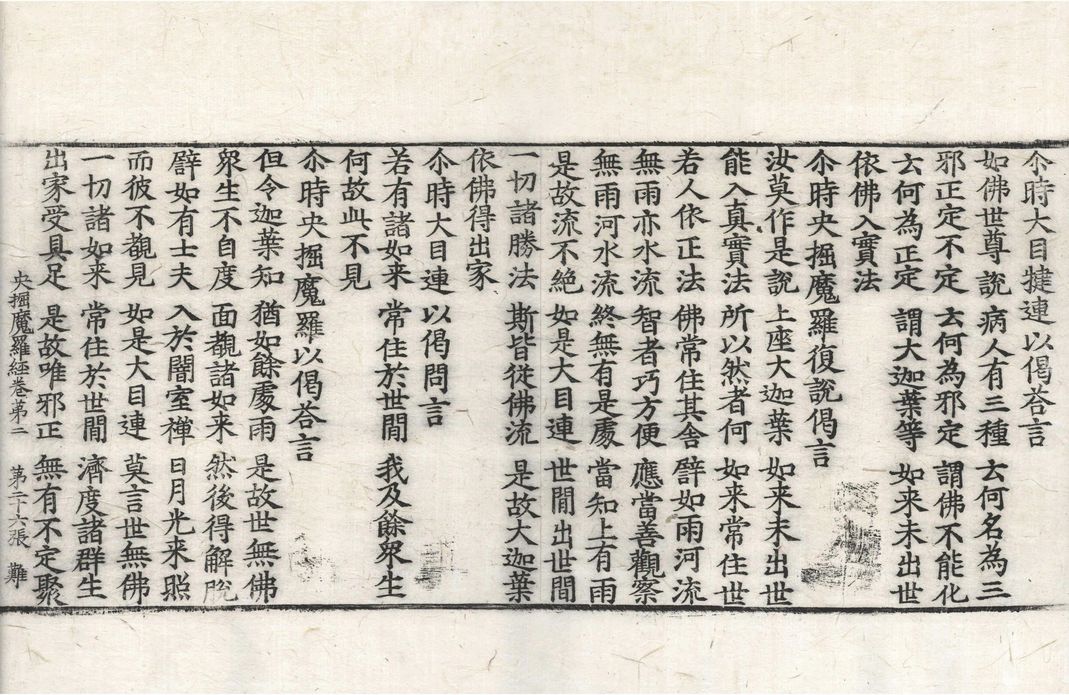 尒時大目揵連以偈荅言
如佛世尊說 病人有三種 去何名為三
邪正定不定 去何為邪定 謂佛不能化
去何為正定 謂大迦葉等 如来未出世
依佛入實法
尒時央掘魔羅復說偈言
汝莫作是說 上座大迦葉 如来未出世
能入真實法 所以然者何 如来常住世
若人依正法 佛常住其舎 辟如雨河流
無雨亦水流 智者巧方便 應當善觀察
無雨河水流 終無有是處 當知上有雨
是故流不絶 如是大目連 世間出世間
一切諸勝法 斯皆従佛流 是故大迦葉
依佛得出家
尒時大目連以偈問言
若有諸如来 常住於世間 我及餘衆生
何故此不見
尒時央掘魔羅以偈荅言
但令迦葉知 猶如餘處雨 是故世無佛
衆生不自度 面觀諸如来 然後得解脫
辟如有士夫 入於闇室禪 日月光来照
而彼不觀見 如是大目連 莫言世無佛
一切諸如来 常住於世間 濟度諸群生
出家受具足 是故唯邪正 無有不定聚
央掘魔羅経卷第二 第二十六張 難